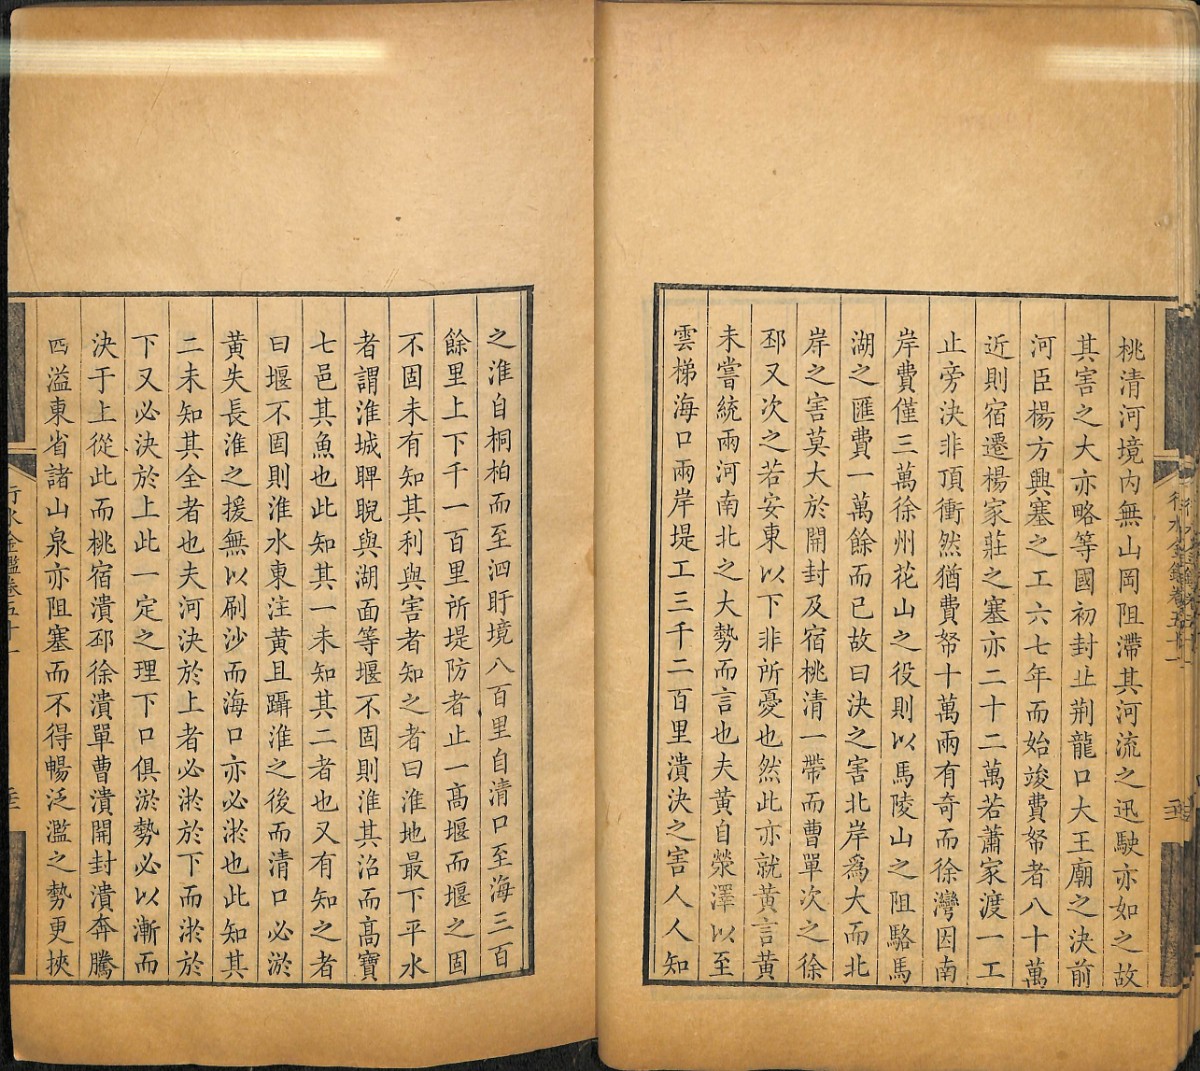 桃清河境内無山岡阻滯其河流之迅駛亦如之故
其害之大亦略等國初封丘荆龍口大王廟之決前
河臣楊方興塞之工六七年而始竣費帑者八十萬
近則宿遷楊家莊之塞亦二十二萬若蕭家渡一工
止旁決非頂衝然猶費帑十萬兩有奇而徐灣因南
岸費僅三萬徐州花山之役則以馬陵山之阻駱馬
湖之匯費一萬餘而已故曰決之害北岸爲大而北
岸之害莫大於開封及宿桃清一帶而曹單次之徐
邳又次之若安東以下非所憂也然此亦就黄言黄
未嘗統兩河南北之大勢而言也夫黄自滎澤以至
雲梯海口兩岸堤工三千二百里潰決之害人人知
行水金鑑卷五十一
之淮自桐柏而至泗盱境八百里自清口至海三百
餘里上下千一百里所堤防者止一高堰而堰之固
不固未有知其利與害者知之者曰淮地最下平水
者謂淮城睥睨與湖面等堰不固則淮其沼而高寶
七邑其魚也此知其一未知其二者也又有知之者
曰堰不固則淮水東注黄且躡淮之後而清口必淤
黄失長淮之援無以刷沙而海口亦必淤也此知其
二未知其全者也夫河決於上者必淤於下而淤於
下又必決於上此一定之理下口俱淤勢必以漸而
決于上從此而桃宿潰邳徐潰單曹潰開封潰奔騰
四溢東省諸山泉亦阻塞而不得暢泛濫之勢更挾
行水金鑑卷五十一